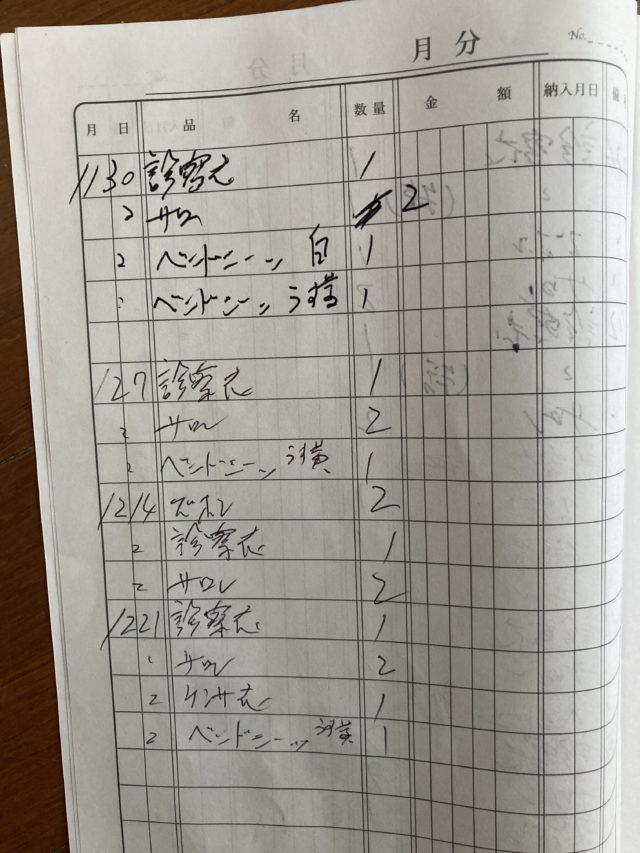 月分 No.
月 日 品 名 数量 金 額 納入月日
11 30 診察衣 1
〃 サロン 2
〃 ベッドシーツ 白 1
〃 ベッドシーツ うす黄 1
12 7 診察衣 1
〃 サロン 2
〃 ベッドシーツ うす黄 1
12 14 ズボン 2
〃 診察衣 1
〃 サロン 2
12 21 診察衣 1
〃 サロン 2
〃 ケンサ衣 1
〃 ベッドシーツ うす黄 1